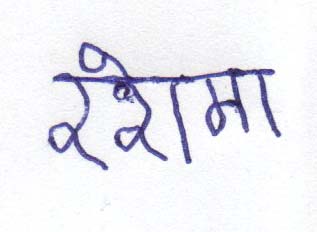 रेशमा